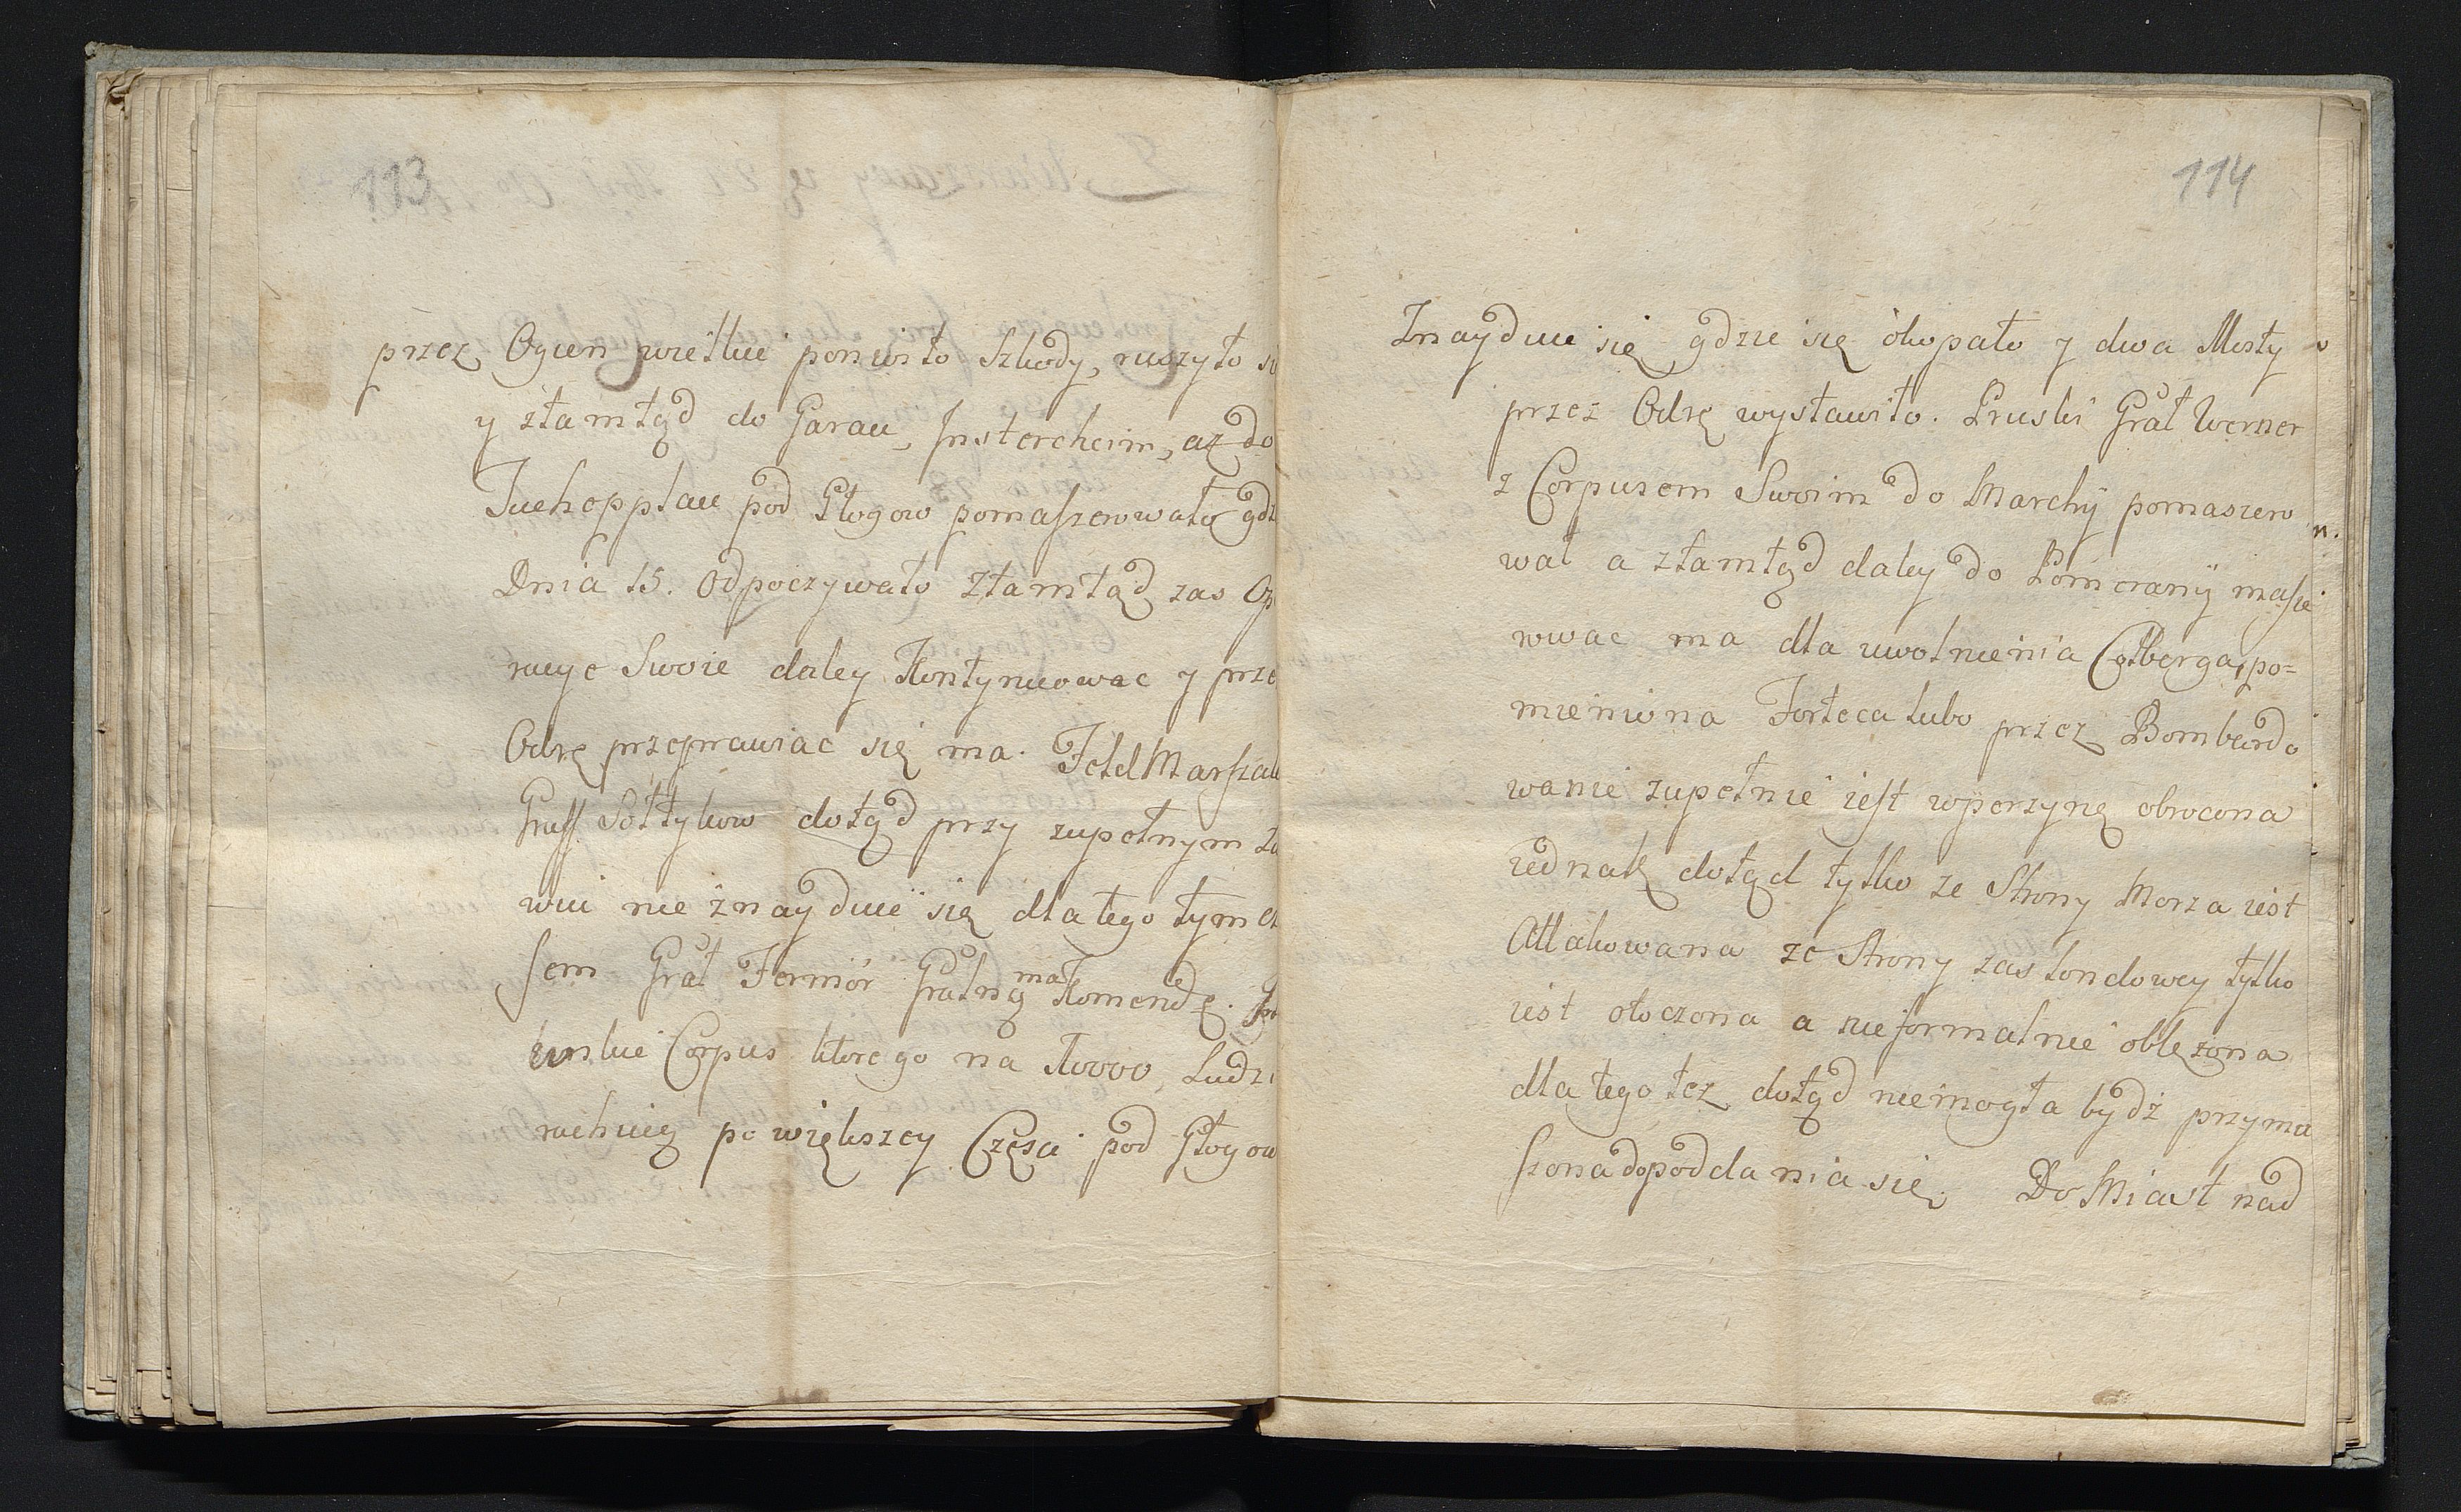 113
przez Ogien wielkie poniosło Szkody, ruszyło si
y ztamtąd do Garau, Instercheim, aż do
Tuchopplau pod Głogow pomaszerowało gdz
Dnia 15. Odpoczywało ztamtąd zas Op
racye Swoie daley Kontynuowac y prze
Odrę przeprawiac się ma. Feld Marszał
Graff Sołtykow dotąd przy zupełnym Z
wiu nie znayduie się dla tego tym cz
sem Grał Fermor Gralną ma Komendę.
Corpus ktorego na Ludzi
rachuią po większey Częsci pod Głogow
114
Znayduie się gdzie się okopało y dwa Mosty
przez Odrę wystawiło. Pruski Grał Werner
z Corpusem Swoim do Marchÿ pomaszero
wał a ztamtąd daley do Pomeranÿ masze
rowac ma dla uwolnienia Colberga, po=
mieniona Forteca lubo przez Bombardo
wanie zupełnie iest w perzynę obrocona
iednak dotąd tylko ze Strony Morza iest
Attakowana ze Strony zas londowey tylko
iest otoczona a nie formalnie oblęzona
dla tego tez dotąd niemogła bydź przymu
szona do poddania się. Do Miast nad